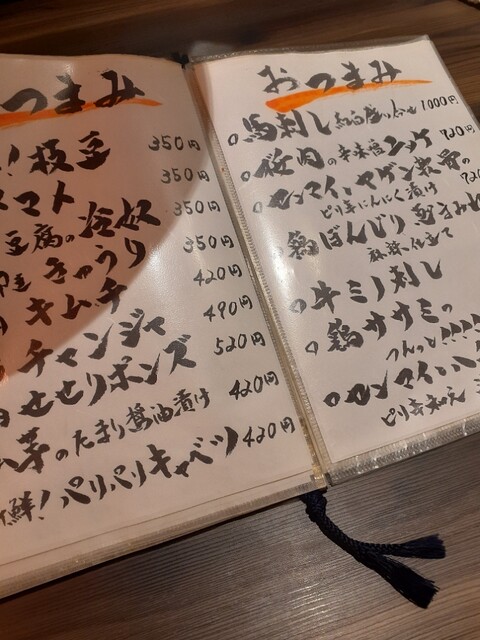 つまみ
！枝豆 350円
トマト 350円
豆腐の冷奴 350円
きゅうり 350円
キムチ 420円
チャンジャ 490円
せせりポンズ 520円
芋のたまり醤油漬け 420円
鮮！パリパリキャベツ 420円
おつまみ
馬刺し 紅白盛り合せ 1000円
桜肉の辛来福ユッケ 720円
センマイとヤゲン軟骨の
ピリ辛にんにく漬け
鶏ぼんじり
麻辣仕立て
牛ミノ刺し
鶏ササミの
つんっと！！！！
センマイ
ピリ辛和え